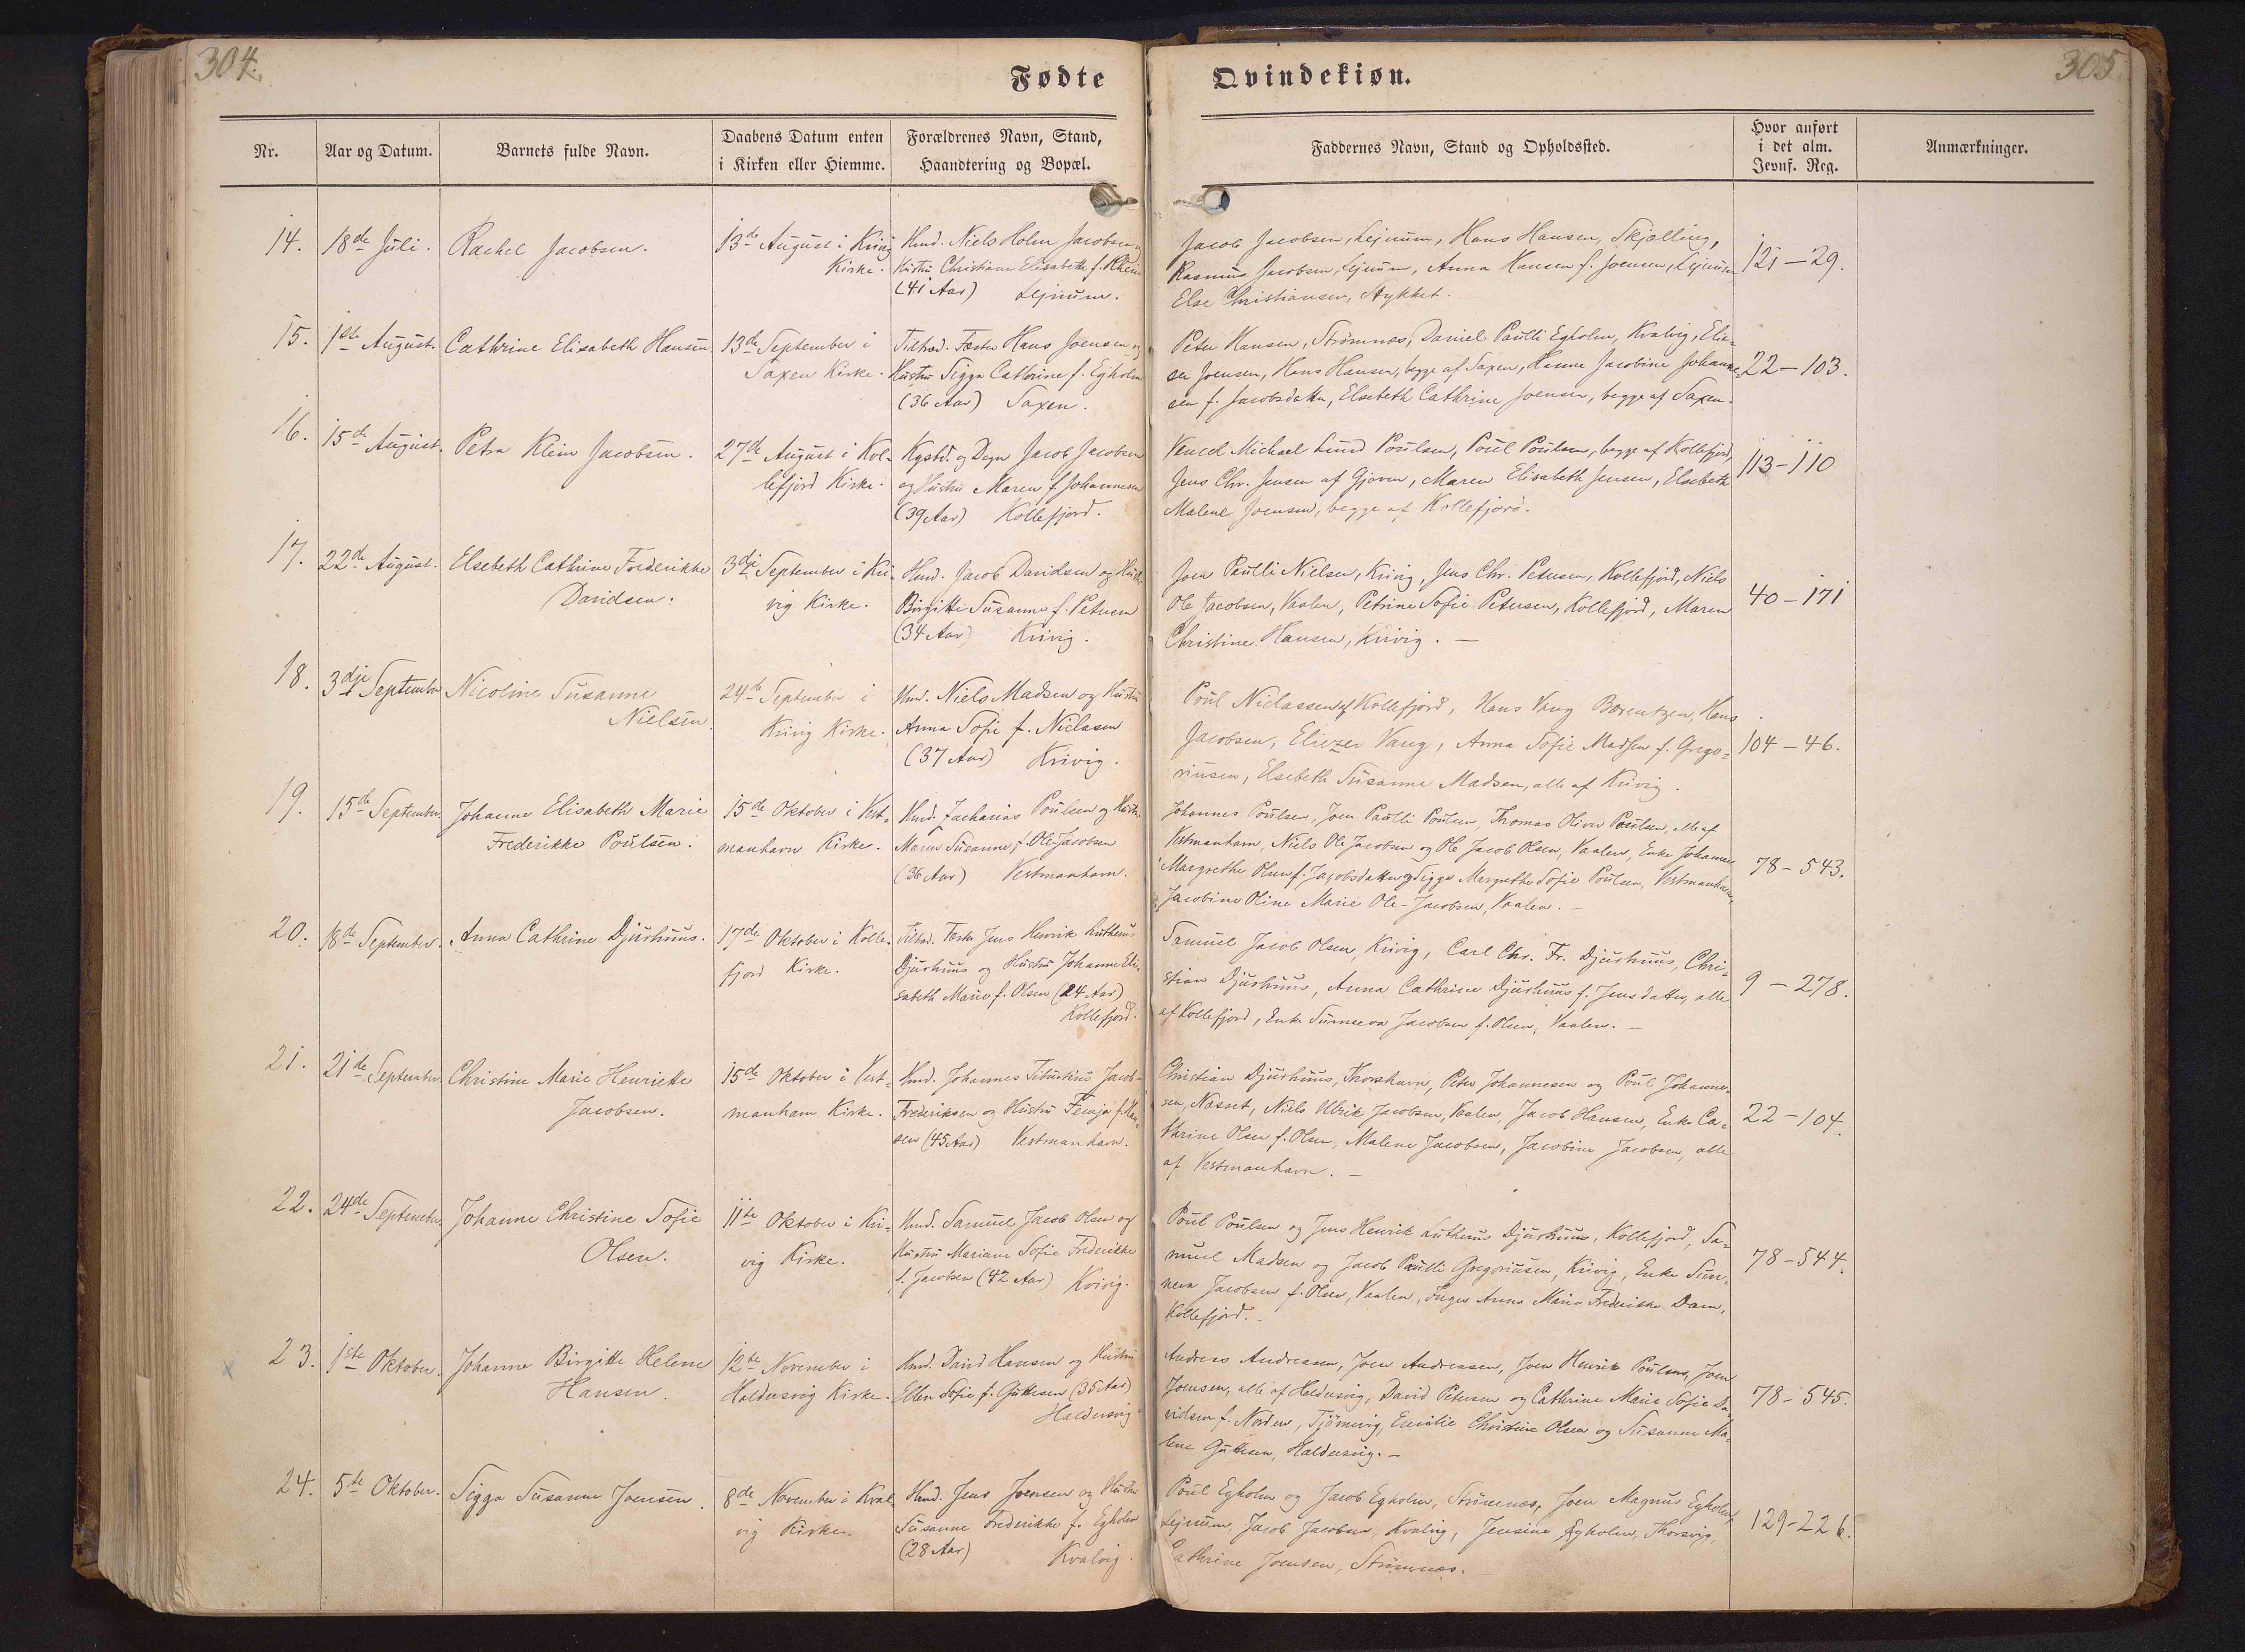 304.
305
Fødte
Qvindekiøn.
Nr.
Aar og Datum.
Barnets fulde Navn.
Daabens Datum enten
i Kirken eller Hiemme.
Forældrenes Navn, Stand,
Haandtering og Bopæl.
Faddernes Navn, Stand og Opholdssted.
Hvor anført
i det alm.
Jevnf. Reg.
Anmærkninger.
14.
18de Juli.
Rachel Jacobsen.
13de August i Kvivig
Kirke.
Hmd. Niels Holm Jacobsen
Hustru Christiane Elisabeth f. Klein
(41 Aar) Lejnum.
Jacob Jacobsen, Lejnum, Hans Hansen, Skjælling,
Rasmus Jacobsen, Lejnum, Anna Hansen f. Joensen, Lejnum
Else Christiansen, Stykket.
121-29.
15.
1ste August.
Cathrine Elisabeth Hansen
13de September i
Saxen Kirke.
Tiltræd. Fæster Hans Joensen og
Hustru Sigga Cathrine f. Egholm
(36 Aar) Saxen.
Peter Hansen, Strømnæs, Daniel Paulli Egholm, Kvalvig, Elie-
ser Joensen, Hans Hansen, begge af Saxen, Hanne Jacobine Johanne-
sen f. Jacobsdatter, Elsebeth Cathrine Joensen, begge af Saxen.
22-103.
16.
15de August.
Petra Klein Jacobsen.
27de August i Kol-
lefjord Kirke.
Kgsbd. og Degn Jacob Jacobsen
og Hustru Maren f. Johannesen
(39 Aar) Kollefjord.
Michael Lund Poulsen, Poul Poulsen, begge af Kollefjord,
Jens Chr. Jensen af Gjoven, Maren Elisabeth Jensen, Elsebeth
Malene Joensen, begge af Kollefjord.
113-110
17.
22de August.
Elsebeth Cathrine Frederikke
Davidsen.
3dje September i Kvi-
vig Kirke.
Hmd. Jacob Davidsen og Hustr.
Birgitte Susanne f. Petersen
(34 Aar) Kvivig.
Joen Paulli Nielsen, Kvivig, Jens Chr. Petersen, Kollefjord, Niels
Ole Jacobsen, Vaalen, Petrine Sofie Petersen, Kollefjord, Maren
Christine Hansen, Kvivig. —
40-171
18.
3dje September
Nicoline Susanne
Nielsen
24de September i
Kvivig Kirke.
Hmd. Niels Madsen og Hustru
Anna Sofie f. Niclasen
(37 Aar) Kvivig.
Poul Niclassen af Kollefjord, Hans Vang Bærentzen, Hans
Jacobsen, Eliezer Vang, Anna Sofie Madsen f. Grego-
riusen, Elsebeth Susanne Madsen, alle af Kvivig.
104-46.
19.
15de September.
Johanne Elisabeth Marie
Frederikke Poulsen.
15de Oktober i Vest-
manhavn Kirke.
Hmd. Zacharias Poulsen og Hustr.
Maren Susanne f. Ole-Jacobsen
(36 Aar) Vestmanhavn.
Johannes Poulsen, Joen Paulli Poulsen, Thomas Oliver Poulsen, alle af
Vestmanhavn, Niels Ole Jacobsen og Ole Jacob Olsen, Vaalen, Enke Johanne
Margrethe Olsen f. Jacobsdatter og Sigga Margrethe Sofie Poulsen, Vestmanhavn,
Jacobine Oline Marie Ole-Jacobsen, Vaalen. —
78-543.
20.
18de September.
Anna Cathrine Djurhuus.
17de Oktober i Kolle-
fjord Kirke.
Tiltræd. Fæster Jens Henrik Lutherus
Djurhuus og Hustru Johanne Eli-
sabeth Marie f. Olsen (24 Aar)
Kollefjord.
Samuel Jacob Olsen, Kvivig, Carl Chr. Fr. Djurhuus, Chri-
stian Djurhuus, Anna Cathrine Djurhuus f. Jensdatter, alle
af Kollefjord, Enke Sunneva Jacobsen f. Olsen, Vaalen. —
9-278.
21.
21de September.
Christine Marie Henriette
Jacobsen.
15de Oktober i Vest-
manhavn Kirke.
Hmd. Johannes Tiburtius Jacob-
Frederiksen og Hustru Femja f. Han-
sen (45 Aar) Vestmanhavn.
Christian Djurhuus, Thorshavn, Peter Johannesen og Poul Johanne-
sen, Næsset, Niels Ulrik Jacobsen, Vaalen, Jacob Hansen, Enke Ca-
thrine Olsen f. Olsen, Malene Jacobsen, Jacobine Jacobsen, alle
af Vestmanhavn. —
22-104.
22.
24de September.
Johanne Christine Sofie
Olsen.
11te Oktober i Kvi-
vig Kirke.
Hmd. Samuel Jacob Olsen og
Hustru Mariane Sofie Frederikke
f. Jacobsen (42 Aar) Kvivig.
Poul Poulsen og Jens Henrik Lutherus Djurhuus, Kollefjord, Sa-
muel Madsen og Jacob Paulli Gregoriusen, Kvivig, Enke Sun-
neva Jacobsen f. Olsen, Vaalen, Inger Anna Maria Frederikke Dam,
Kollefjord. —
78-544.
23.
1ste Oktober.
Johanne Birgitte Helene
Hansen.
12te November i
Haldersvig Kirke.
Hmd. David Hansen og Hustru
Ellen Sofie f. Guttesen (35 Aar)
Haldersvig
Andreas Andreasen, Joen Andreasen, Joen Henrik Poulsen, Joen
Joensen, alle af Haldersvig, David Petersen og Cathrine Marie Sofie Da-
vidsen f. Norden, Tjørnevig, Emilie Christine Olsen og Susanne Ma-
lene Guttesen, Haldersvig. —
78-545.
24.
5te Oktober.
Sigga Susanne Joensen.
8de November i Kval-
vig Kirke.
Hmd. Jens Joensen og Hustru
Susanne Frederikke f. Egholm
(28 Aar) Kvalvig.
Poul Egholm og Jacob Egholm, Strømnæs, Joen Magnus Egholm,
Lejnum, Jacob Jacobsen, Kvalvig, Jensine Egholm, Thorsvig,
Cathrine Joensen, Strømnæs. —
129-226.